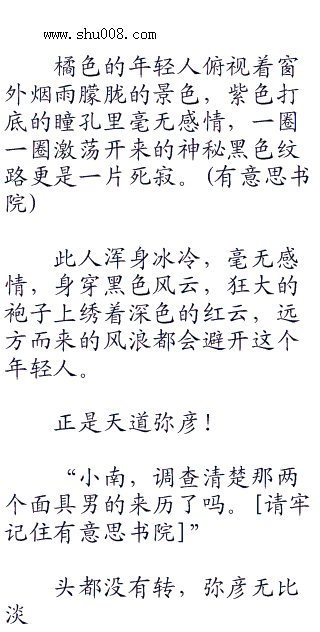 www.shu008.com
橘色的年轻人俯视着窗
外烟雨朦胧的景色，紫色打
底的瞳孔里毫无感情，一圈
一圈激荡开来的神秘黑色纹
路更是一片死寂。(有意思书
院)
此人浑身冰冷，毫无感
情，身穿黑色风云，狂大的
袍子上绣着深色的红云，远
方而来的风浪都会避开这个
年轻人。
正是天道弥彦！
“小南，调查清楚那两
个面具男的来历了吗。[请牢
记住有意思书院]”
头都没有转，弥彦无比
淡